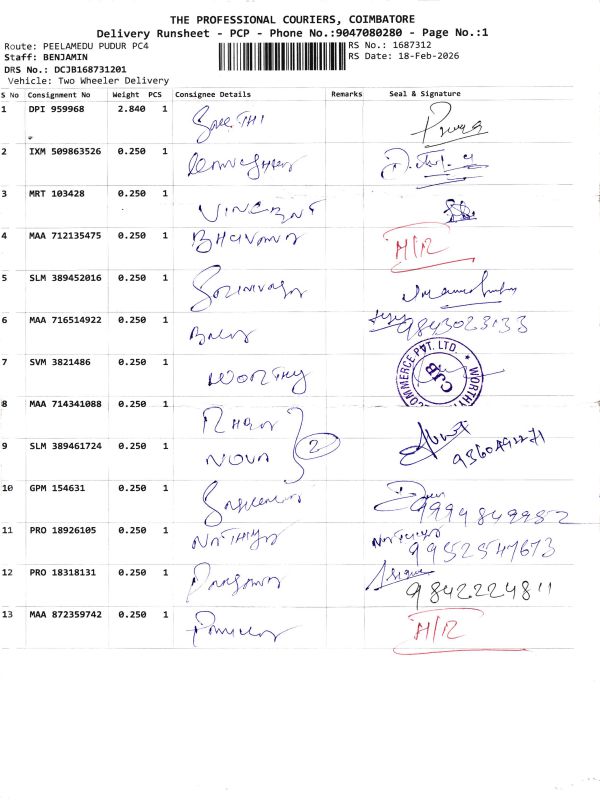 THE PROFESSIONAL COURIERS, COIMBATORE
Delivery Runsheet - PCP - Phone No.:9047080280 - Page No.:1
Route: PEELAMEDU PUDUR PC4 RS No.: 1687312
Staff: BENJAMIN RS Date: 18-Feb-2026
DRS No.: DCJB168731201
Vehicle: Two Wheeler Delivery
S No Consignment No Weight PCS Consignee Details Remarks Seal & Signature
1 DPI 959968 2.840 1
2 IXM 509863526 0.250 1
3 MRT 103428 0.250 1 VINCENT
4 MAA 712135475 0.250 1 BHAVANA H/R
5 SLM 389452016 0.250 1
6 MAA 716514922 0.250 1 9843023133
7 SVM 3821486 0.250 1 WORTHY COMMERCE PVT. LTD. ★ WORTHY CJB
8 MAA 714341088 0.250 1
9 SLM 389461724 0.250 1 NOVA 2
10 GPM 154631 0.250 1
11 PRO 18926105 0.250 1 NATHIYA
12 PRO 18318131 0.250 1 9842224811
13 MAA 872359742 0.250 1 H/R